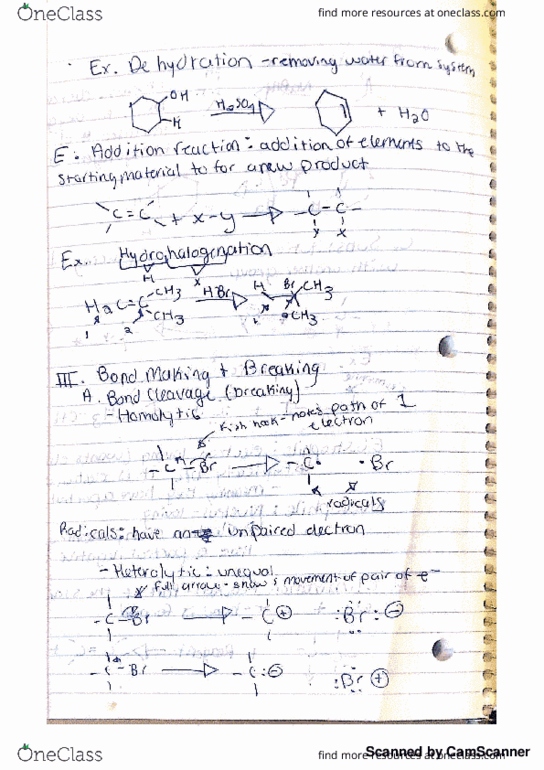 OneClass
find more resources at oneclass.com
Ex. Dehydration - removing water from system
OH
H
H₂SO₄
+ H₂O
E. Addition reaction: addition of elements to the
starting material to for a new product
C=C + x-y
-C-C-
y x
Ex. Hydrohalogenation
H x
H₂C=C CH₃ CH₃
1 2
HBr
H Br CH₃
CH₃
III. Bond Making + Breaking
A. Bond Cleavage (breaking)
- Homolytic
Fish hook - notes path of 1
electron
-C-Br
-C• •Br
radicals
Radicals: have an unpaired electron
- Heterolytic: unequal
* full arrow - shows movement of pair of e⁻
-C-Br
-C⊕ :Br:⊖
-C-Br
-C:⊖ :Br⊕
Scanned by CamScanner
OneClass
find more resources at oneclass.com